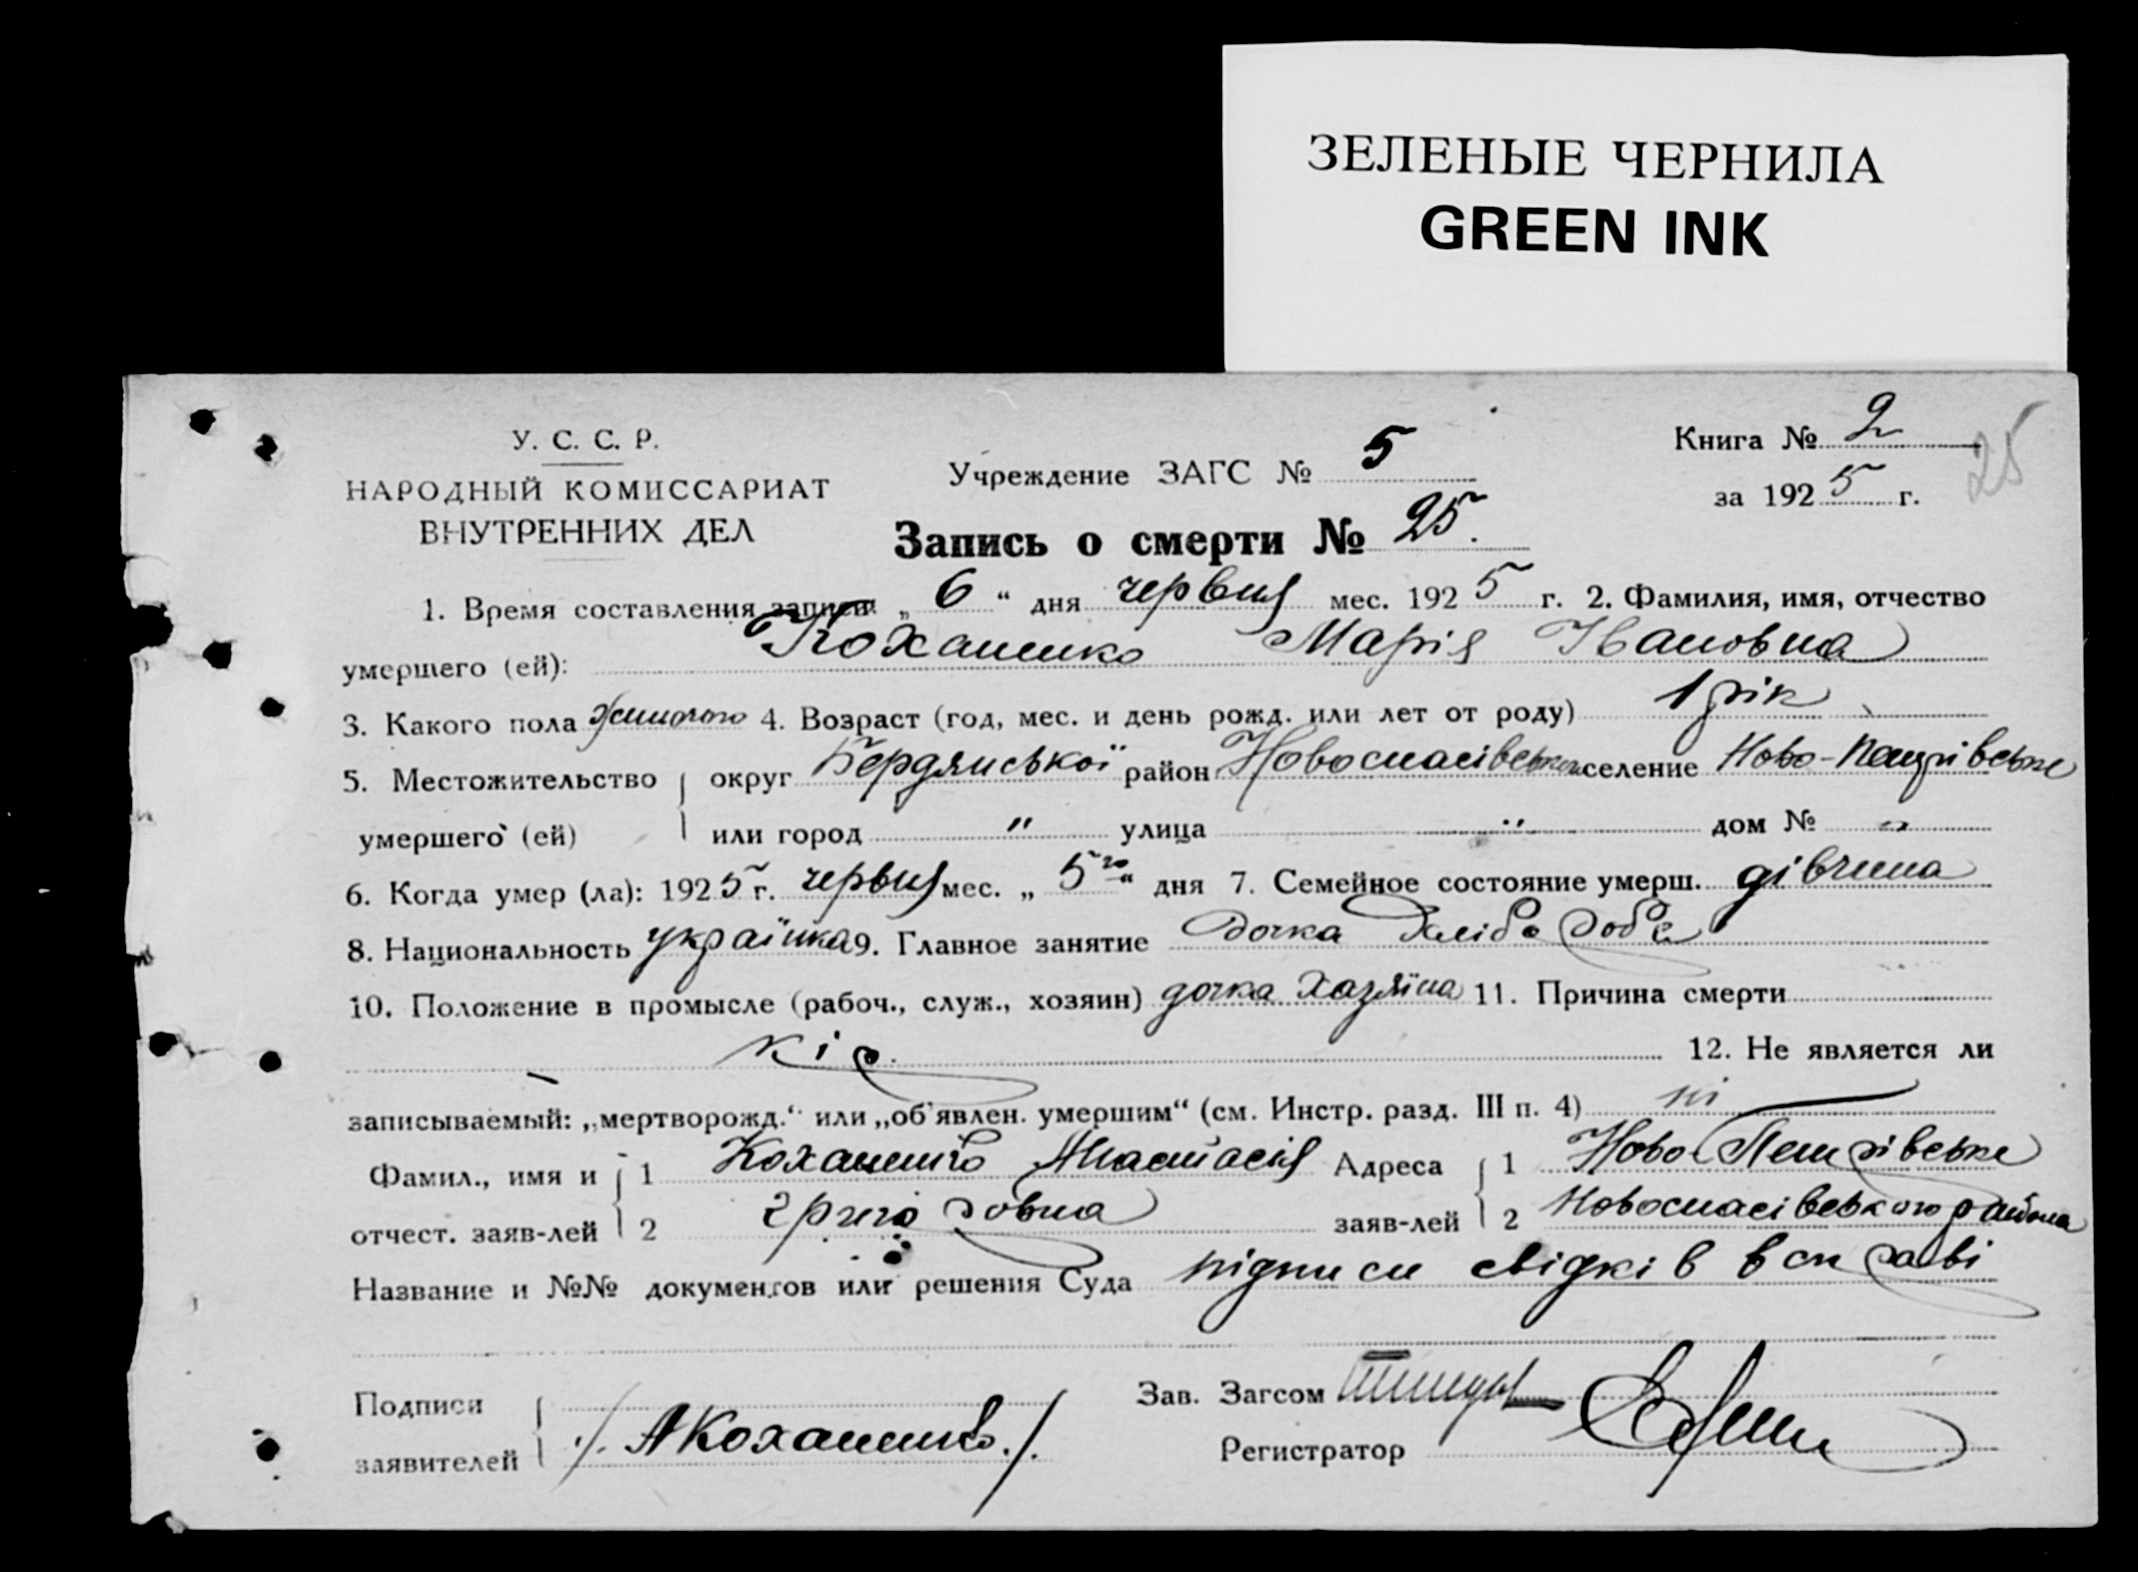 ЗЕЛЕНЫЕ ЧЕРНИЛА
GREEN INK
У. С. С. Р.
НАРОДНЫЙ КОМИССАРИАТ
ВНУТРЕННИХ ДЕЛ
Учреждение ЗАГС № 5
Книга № 2
за 1925 г.
25
Запись о смерти № 25.
1. Время составления записи „6“ дня червня мес. 1925 г. 2. Фамилия, имя, отчество
умершего (ей): Коханенко Марія Івановна
3. Какого пола жіночого 4. Возраст (год, мес. и день рожд. или лет от роду) 1 рік
5. Местожительство округ Бердянської район Новоспасівського селение Ново-Петрівське
умершего (ей) или город " улица " дом № "
6. Когда умер (ла): 1925 г. червня мес. „5го“ дня 7. Семейное состояние умерш. дівчина
8. Национальность українка 9. Главное занятие дочка хлібороба
10. Положение в промысле (рабоч., служ., хозяин) дочка хазяїна 11. Причина смерти
кір. 12. Не является ли
записываемый: „мертворожд.“ или „об'явлен. умершим“ (см. Инстр. разд. III п. 4) ні
Фамил., имя и 1 Коханенко Анастасія Адреса 1 Ново-Петрівське
отчест. заяв-лей 2 Григоровна заяв-лей 2 Новоспасівського района
Название и №№ документов или решения Суда підписи свідків в справі
Подписи
заявителей /. АКоханенко. /.
Зав. Загсом
Регистратор